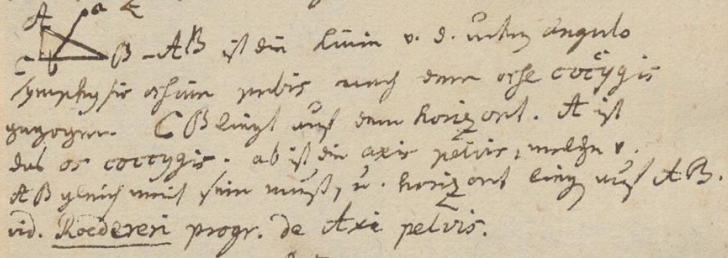 A a
C b B – AB ist die Linie v. d. untern angulo
symphysis ossium pubis nach dem osse coccygis
gezogen. CB liegt auf dem horizont. A ist
das os coccygis. ab ist die axis pelvis, welche v.
AB gleich weit sein muß, u. horizont liegt auf AB.
vid. Roedereri progr. de Axi pelvis.